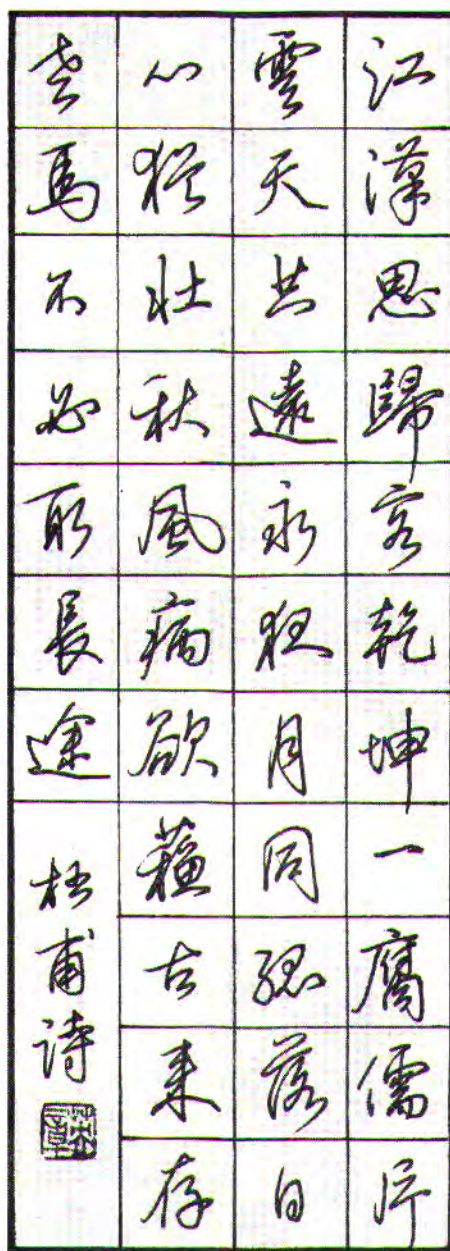 江漢思歸客乾坤一腐儒片
雲天共遠永夜月同孤落日
心猶壯秋風病欲蘇古來存
老馬不必取長途
杜甫詩